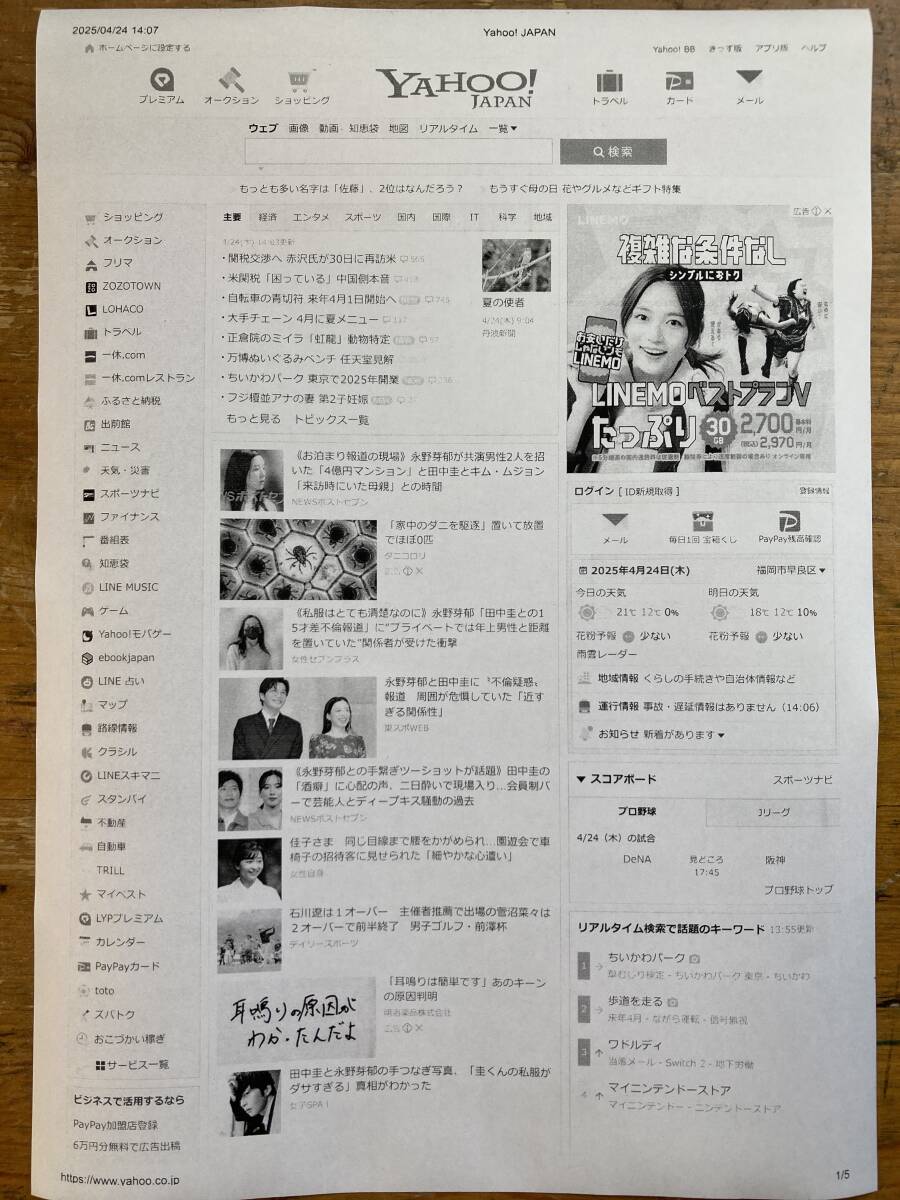 2025/04/24 14:07
Yahoo! JAPAN
ホームページに設定する
Yahoo! BB きっず版 アプリ版 ヘルプ
プレミアム オークション ショッピング
YAHOO!
JAPAN
トラベル カード メール
ウェブ 画像 動画 知恵袋 地図 リアルタイム 一覧▼
検索
もっとも多い名字は「佐藤」、2位はなんだろう？
もうすぐ母の日 花やグルメなどギフト特集
ショッピング
オークション
フリマ
ZOZOTOWN
LOHACO
トラベル
一休.com
一休.comレストラン
ふるさと納税
出前館
ニュース
天気・災害
スポーツナビ
ファイナンス
番組表
知恵袋
LINE MUSIC
ゲーム
Yahoo!モバゲー
ebookjapan
LINE 占い
マップ
路線情報
クラシル
LINEスキマニ
スタンバイ
不動産
自動車
TRILL
マイベスト
LYPプレミアム
カレンダー
PayPayカード
toto
ズバトク
おこづかい稼ぎ
サービス一覧
ビジネスで活用するなら
PayPay加盟店登録
6万円分無料で広告出稿
主要 経済 エンタメ スポーツ 国内 国際 IT 科学 地域
4/24(木) 14:03更新
・関税交渉へ 赤沢氏が30日に再訪米 565
・米関税「困っている」中国側本音
・自転車の青切符 来年4月1日開始へ 745
・大手チェーン 4月に夏メニュー 117
・正倉院のミイラ「虹龍」動物特定 57
・万博ぬいぐるみベンチ 任天堂見解
・ちいかわパーク 東京で2025年開業
・フジ榎並アナの妻 第2子妊娠
もっと見る トピックス一覧
夏の使者
4/24(木) 9:04
丹波新聞
《お泊まり報道の現場》永野芽郁が共演男性2人を招
いた「4億円マンション」と田中圭とキム・ムジョン
「来訪時にいた母親」との時間
NEWSポストセブン
「家中のダニを駆逐」置いて放置
でほぼ0匹
ダニコロリ
広告
《私服はとても清楚なのに》永野芽郁「田中圭との1
5才差不倫報道」に“プライベートでは年上男性と距離
を置いていた”関係者が受けた衝撃
女性セブンプラス
永野芽郁と田中圭に〝不倫疑惑〟
報道 周囲が危惧していた「近す
ぎる関係性」
東スポWEB
《永野芽郁との手繋ぎツーショットが話題》田中圭の
「酒癖」に心配の声、二日酔いで現場入り…会員制バ
ーで芸能人とディープキス騒動の過去
NEWSポストセブン
佳子さま 同じ目線まで腰をかがめられ…園遊会で車
椅子の招待客に見せられた「細やかな心遣い」
女性自身
石川遼は１オーバー 主催者推薦で出場の菅沼菜々は
２オーバーで前半終了 男子ゴルフ・前澤杯
デイリースポーツ
耳鳴りの原因が
わか・たんだよ
「耳鳴りは簡単です」あのキーン
の原因判明
明治薬品株式会社
広告
田中圭と永野芽郁の手つなぎ写真、「圭くんの私服が
ダサすぎる」真相がわかった
女子SPA！
広告
LINEMO
複雑な条件なし
シンプルにおトク
お安いだけ
じゃないンモ
LINEMO
LINEMOベストプランV
たっぷり 30GB 2,700円/月
(税込)2,970円/月
ログイン [ ID新規取得 ] 登録情報
メール 毎日1回 宝箱くじ PayPay残高確認
2025年4月24日(木) 福岡市早良区▼
今日の天気 明日の天気
21℃ 12℃ 0% 18℃ 12℃ 10%
花粉予報 少ない 花粉予報 少ない
雨雲レーダー
地域情報 くらしの手続きや自治体情報など
運行情報 事故・遅延情報はありません（14:06）
お知らせ 新着があります▼
▼ スコアボード スポーツナビ
プロ野球 Jリーグ
4/24（木）の試合
DeNA 見どころ 阪神
17:45
プロ野球トップ
リアルタイム検索で話題のキーワード 13:55更新
1 ちいかわパーク
草むしり検定 - ちいかわパーク 東京 - ちいかわ
2 歩道を走る
来年4月 - ながら運転 - 信号無視
3 ワドルディ
当落メール - Switch 2 - 地下労働
4 マイニンテンドーストア
マイニンテンドー - ニンテンドーストア
https://www.yahoo.co.jp
1/5